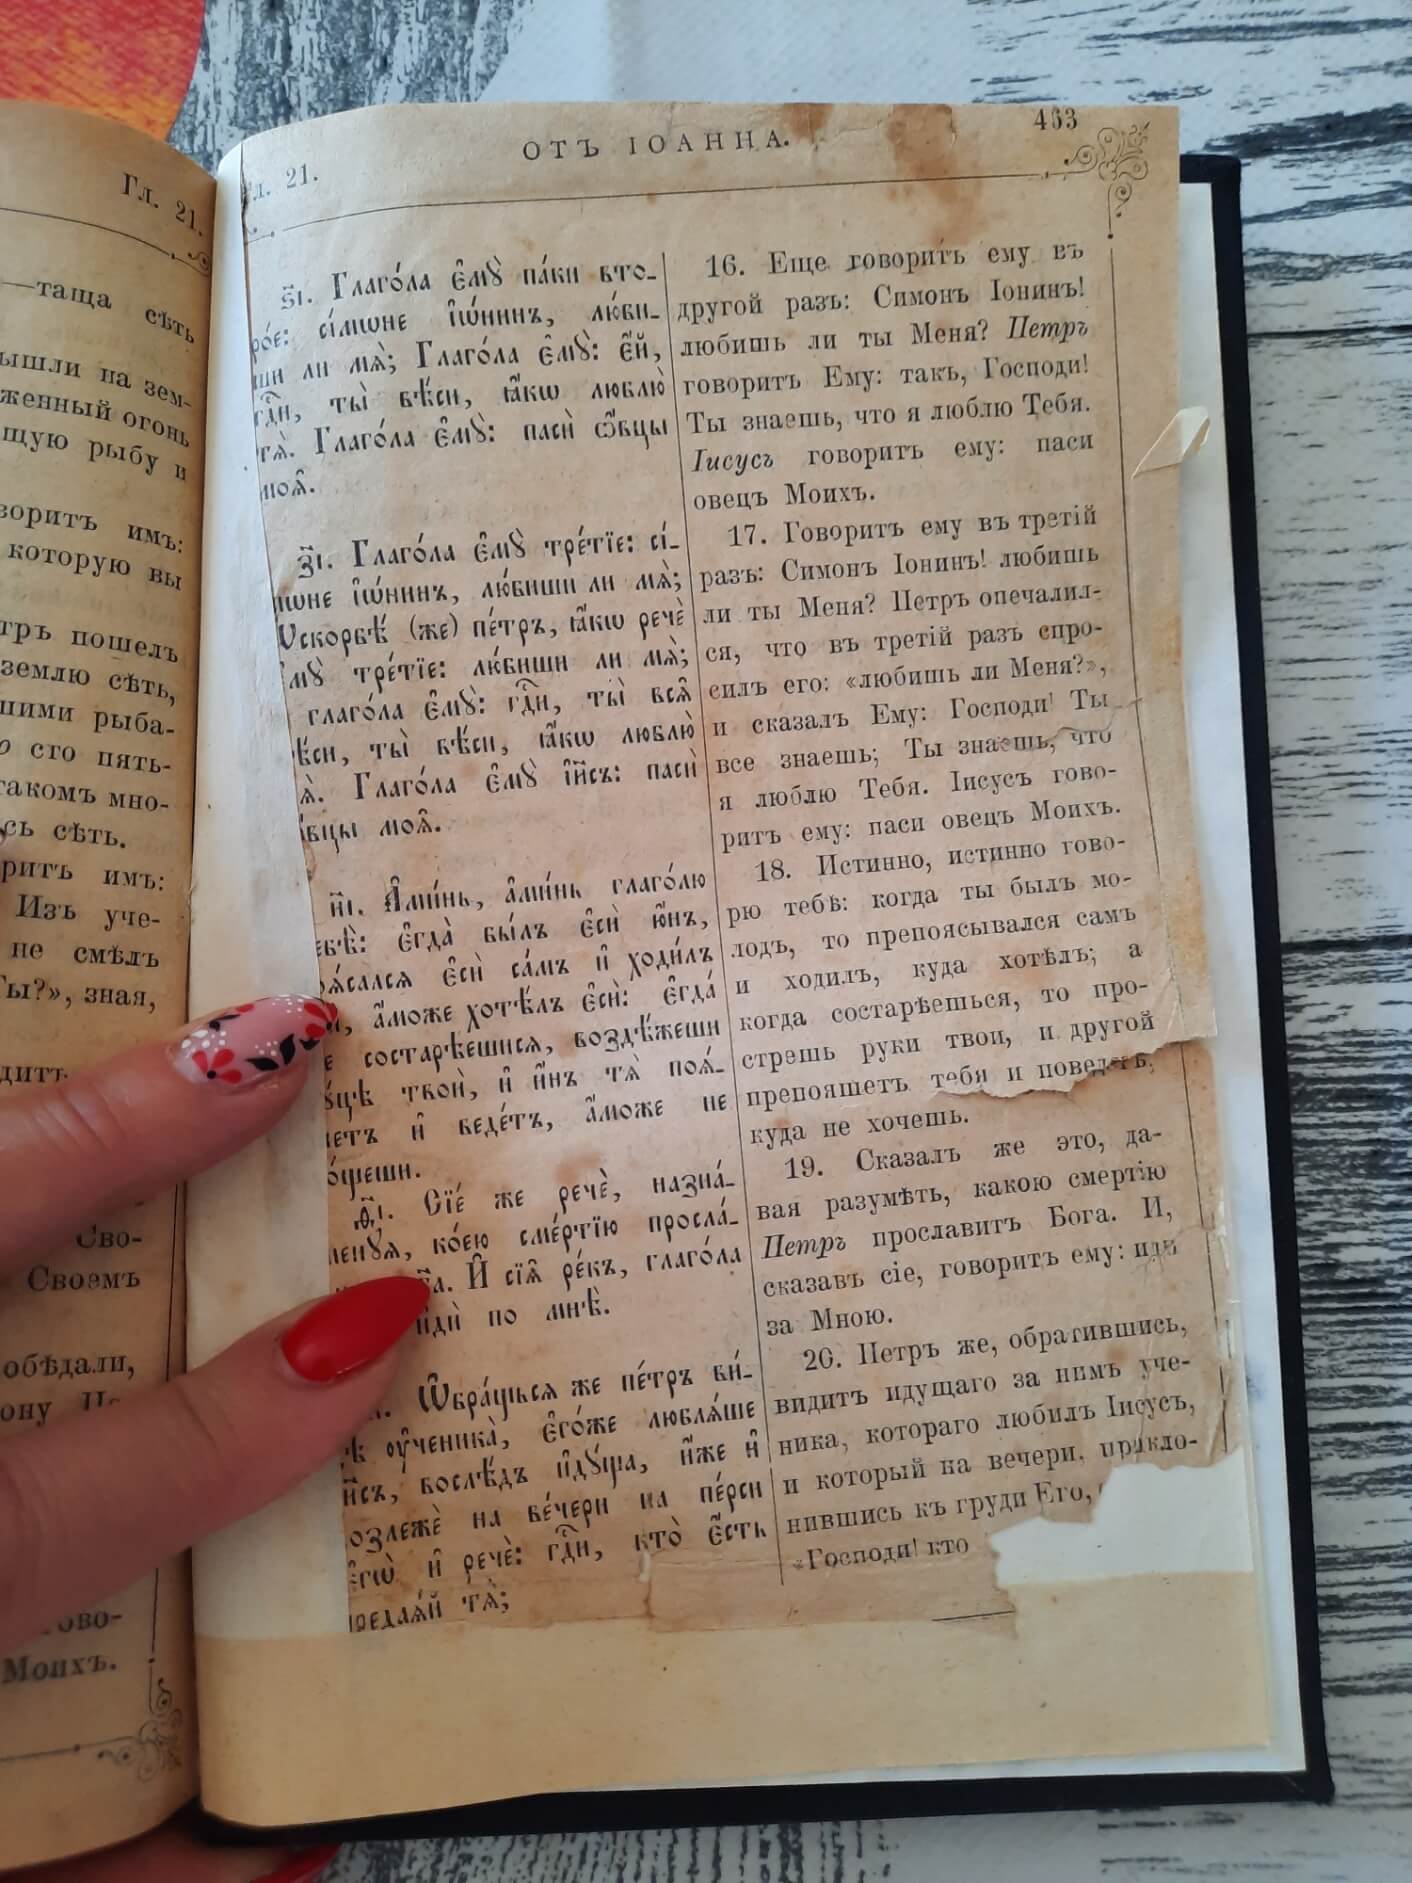 Гл. 21.
—таща сѣть
ышли на зем-
женный огонь
щую рыбу и
ворить имъ:
которую вы
тръ пошелъ
землю сѣть,
шими рыба-
о сто пять-
такомъ мно-
сь сѣть.
ритъ имъ:
Изъ уче-
не смѣлъ
Ты?», зная,
дитъ
Сво-
Своемъ
обѣдали,
ону
гово-
Моихъ.
л. 21.
ОТЪ ІОАННА.
463
ѕ҃і. Глаго́ла є҆мꙋ̀ па́ки вто-
ро́е: сі́мѡне і҆ѡ́нинъ, лю́би-
ши ли мѧ̀; Глаго́ла є҆мꙋ̀: є҆́й,
гдⷭ҇и, ты̀ вѣ́си, ꙗ҆́кѡ люблю̀
тѧ̀. Глаго́ла є҆мꙋ̀: пасѝ ѻ҆́вцы
моѧ̑.
з҃і. Глаго́ла є҆мꙋ̀ тре́тїе: сі́-
мѡне і҆ѡ́нинъ, лю́биши ли мѧ̀;
Ѵскорбѣ́ (же) пе́тръ, ꙗ҆́кѡ речѐ
є҆мꙋ̀ тре́тїе: лю́биши ли мѧ̀;
глаго́ла є҆мꙋ̀: гдⷭ҇и, ты̀ всѧ̑
вѣ́си, ты̀ вѣ́си, ꙗ҆́кѡ люблю̀
ѧ̀. Глаго́ла є҆мꙋ̀ і҆и҃съ: пасѝ
ѻ҆́вцы моѧ̑.
и҃і. А҆ми́нь, а҆ми́нь глаго́лю
ебѣ̀: є҆гда̀ бы́лъ є҆сѝ ю҆́нъ,
оѧ́салсѧ є҆сѝ са́мъ и҆ ходи́лъ
а҆́може хотѣ́лъ є҆сѝ: є҆гда́
е состарѣ́ешисѧ, воздѣ́жеши
ꙋцѣ твоѝ, и҆ и҆́нъ тѧ̀ поѧ́-
етъ и҆ веде́тъ, а҆́може не
о́щеши.
ѳ҃і. Сїе́ же речѐ, назна́-
менꙋѧ, ко́ею сме́ртїю просла́-
б҃а. И҆ сїѧ̑ ре́къ, глаго́ла
и҆дѝ по мнѣ̀.
Ѡ҆бра́щьсѧ же пе́тръ ви́-
ѣ ᲂу҆ченика̀, є҆го́же люблѧ́ше
і҆и҃съ, вослѣ́дъ и҆дꙋ́ща, и҆́же и҆
озлежѐ на ве́чери на пе́рси
є҆гѡ̀ и҆ речѐ: гдⷭ҇и, кто̀ є҆́сть
предаѧ́й тѧ̀;
16. Еще говоритъ ему въ
другой разъ: Симонъ Іонинъ!
любишь ли ты Меня? Петръ
говоритъ Ему: такъ, Господи!
Ты знаешь, что я люблю Тебя.
Іисусъ говоритъ ему: паси
овецъ Моихъ.
17. Говоритъ ему въ третій
разъ: Симонъ Іонинъ! любишь
ли ты Меня? Петръ опечалил-
ся, что въ третій разъ спро-
силъ его: «любишь ли Меня?»,
и сказалъ Ему: Господи! Ты
все знаешь; Ты знаешь, что
я люблю Тебя. Іисусъ гово-
ритъ ему: паси овецъ Моихъ.
18. Истинно, истинно гово-
рю тебѣ: когда ты былъ мо-
лодъ, то препоясывался самъ
и ходилъ, куда хотѣлъ; а
когда состарѣешься, то про-
стрешь руки твои, и другой
препояшетъ тебя и поведетъ,
куда не хочешь.
19. Сказалъ же это, да-
вая разумѣть, какою смертію
Петръ прославитъ Бога. И,
сказавъ сіе, говоритъ ему: иди
за Мною.
20. Петръ же, обратившись,
видитъ идущаго за нимъ уче-
ника, котораго любилъ Іисусъ,
и который на вечери, прикло-
нившись къ груди Его,
«Господи! кто